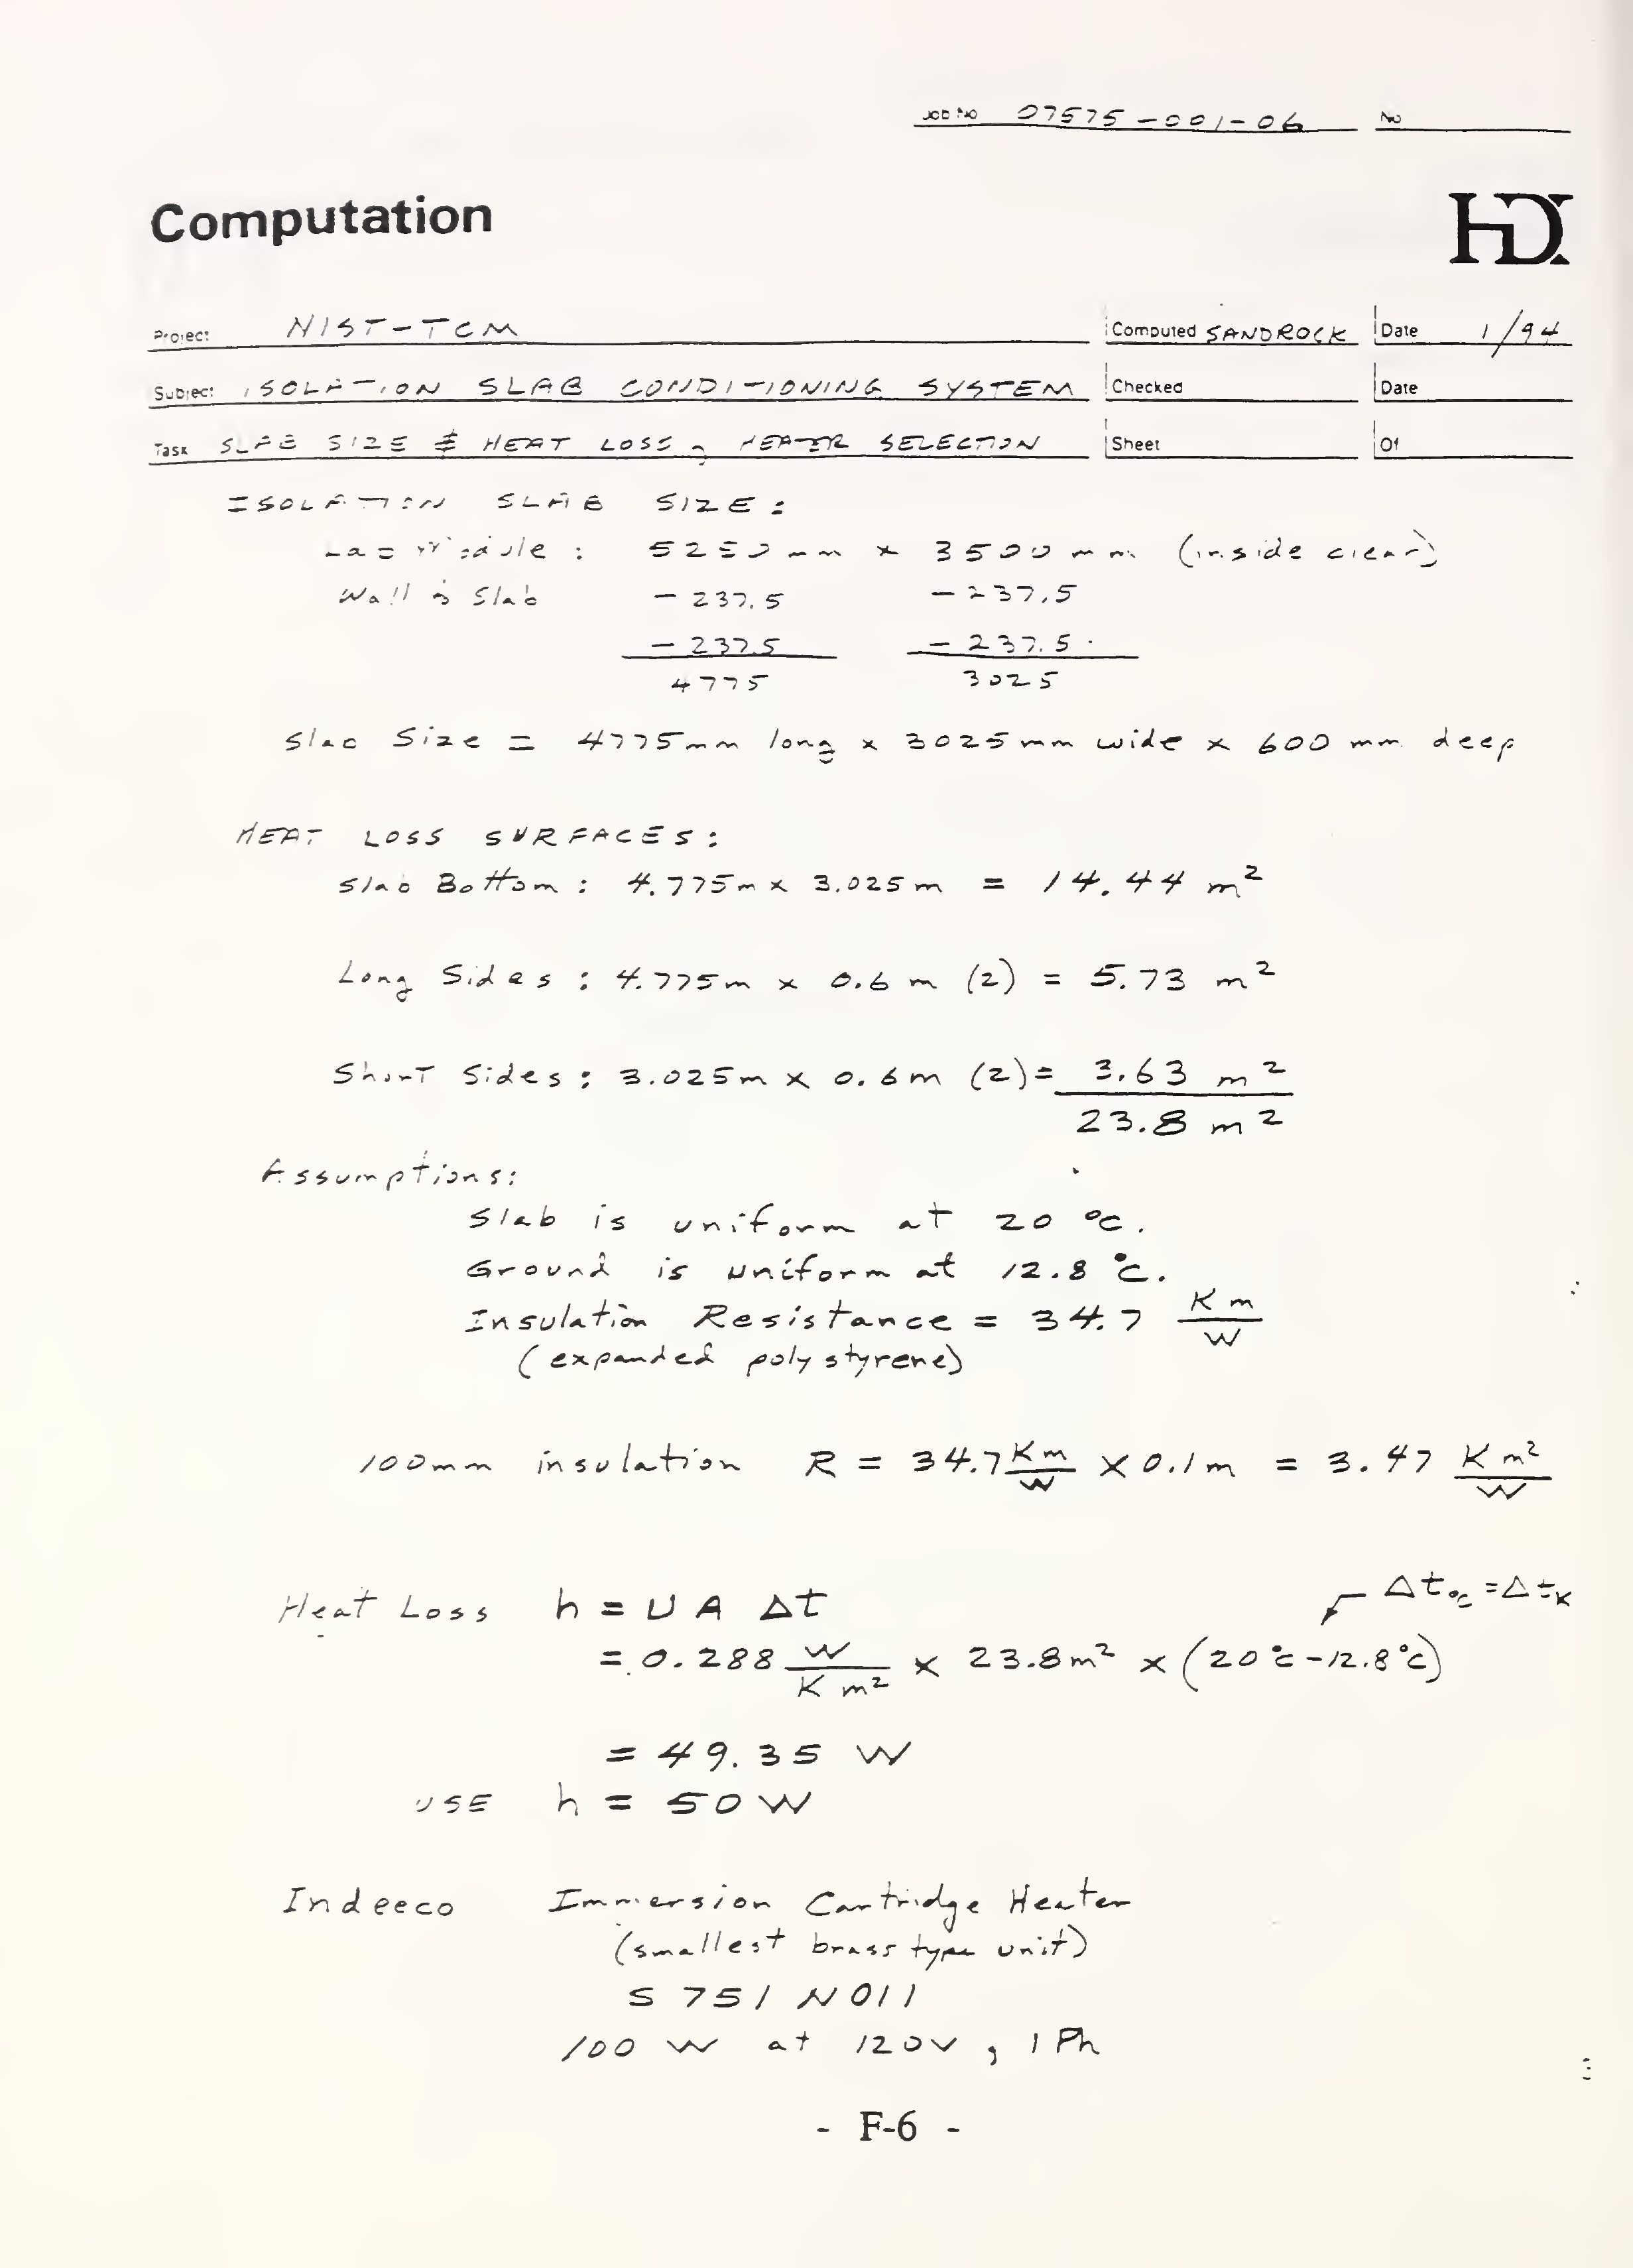 Job No 07575-001-06 No
Computation
HDR
Project NIST-TCM Computed SANDROCK Date 1/94
Subject ISOLATION SLAB CONDITIONING SYSTEM Checked Date
Task SLAB SIZE & HEAT LOSS, HEATER SELECTION Sheet Of
ISOLATION SLAB SIZE:
Lab Module: 5250mm x 3500mm (inside clear)
Wall to Slab -237.5 -237.5
-237.5 -237.5
4775 3025
Slab Size = 4775mm long x 3025mm wide x 600mm deep
HEAT LOSS SURFACES:
Slab Bottom: 4.775m x 3.025m = 14.44 m²
Long Sides: 4.775m x 0.6m (2) = 5.73 m²
Short Sides: 3.025m x 0.6m (2) = 3.63 m²
23.8 m²
Assumptions:
Slab is uniform at 20 °C.
Ground is uniform at 12.8 °C.
Insulation Resistance = 34.7 Km/W
(expanded polystyrene)
100mm insulation R = 34.7 Km/W x 0.1m = 3.47 Km²/W
Δt°C = ΔtK
Heat Loss h = U A Δt
= 0.288 W/Km² x 23.8m² x (20°C-12.8°C)
= 49.35 W
USE h = 50W
Indeeco Immersion Cartridge Heater
(smallest brass type unit)
S 751 N011
100 W at 120V, 1 Ph
- F-6 -